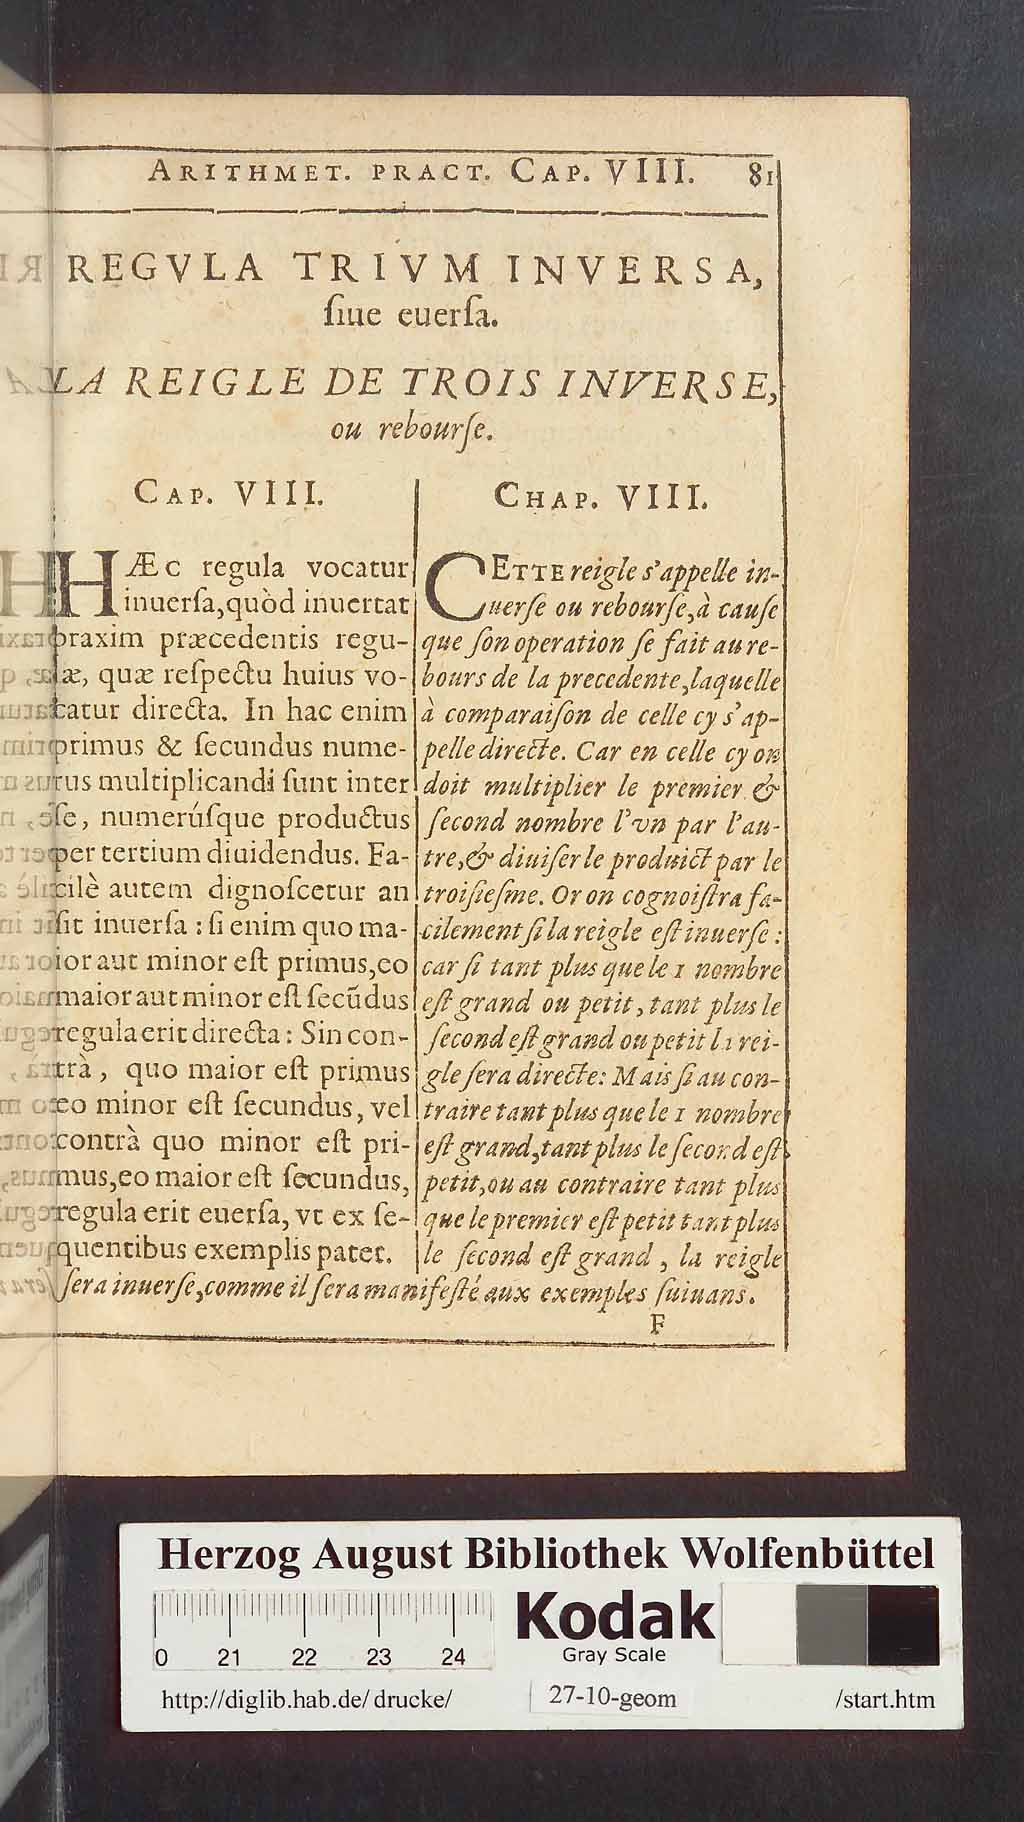 ARITHMET. PRACT. CAP. VIII. 81
REGVLA TRIVM INVERSA,
ſiue euerſa.
LA REIGLE DE TROIS INVERSE,
ou rebourſe.
CAP. VIII.
HÆc regula vocatur
inuerſa, quòd inuertat
praxim præcedentis regu-
læ, quæ reſpectu huius vo-
catur directa. In hac enim
primus & ſecundus nume-
rus multiplicandi ſunt inter
ſe, numerúſque productus
per tertium diuidendus. Fa-
cilè autem dignoſcetur an
ſit inuerſa : ſi enim quo ma-
ior aut minor eſt primus, eo
maior aut minor eſt ſecūdus
regula erit directa : Sin con-
trà, quo maior eſt primus
eo minor eſt ſecundus, vel
contrà quo minor eſt pri-
mus, eo maior eſt ſecundus,
regula erit euerſa, vt ex ſe-
quentibus exemplis patet.
CHAP. VIII.
CETTE reigle s'appelle in-
uerſe ou rebourſe, à cauſe
que ſon operation ſe fait au re-
bours de la precedente, laquelle
à comparaiſon de celle cy s'ap-
pelle directe. Car en celle cy on
doit multiplier le premier &
ſecond nombre l'vn par l'au-
tre, & diuiſer le produict par le
troiſieſme. Or on cognoiſtra fa-
cilement ſi la reigle eſt inuerſe :
car ſi tant plus que le 1 nombre
eſt grand ou petit, tant plus le
ſecond eſt grand ou petit la rei-
gle ſera directe : Mais ſi au con-
traire tant plus que le 1 nombre
eſt grand, tant plus le ſecond eſt
petit, ou au contraire tant plus
que le premier eſt petit tant plus
le ſecond eſt grand, la reigle
ſera inuerſe, comme il ſera manifeſté aux exemples ſuiuans.
F
Herzog August Bibliothek Wolfenbüttel
0 21 22 23 24
Kodak
Gray Scale
http://diglib.hab.de/drucke/ 27-10-geom /start.htm